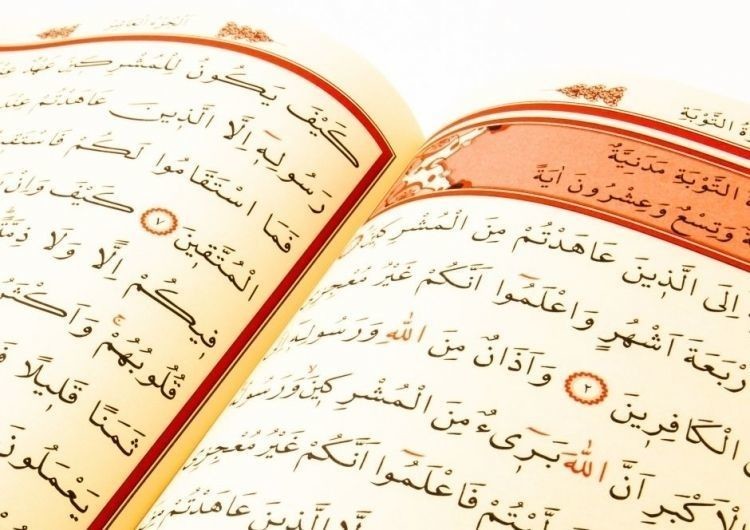 ةُ التَّوْبَةِ
ةُ التَّوْبَةِ مَدَنِيَّةٌ
وَتِسْعٌ وَعِشْرُونَ اٰيَةً
اِلَى الَّذ۪ينَ عَاهَدْتُمْ مِنَ الْمُشْرِك۪ينَ
رْبَعَةَ اَشْهُرٍ وَاعْلَمُٓوا اَنَّكُمْ غَيْرُ مُعْجِزِي
الْكَافِر۪ينَ ٢ وَاَذَانٌ مِنَ اللّٰهِ وَرَسُولِه۪ٓ
الْاَكْبَرِ اَنَّ اللّٰهَ بَر۪ٓيءٌ مِنَ الْمُشْرِك۪ينَۙ وَرَسُولُهُ
يْتُمْ فَاعْلَمُٓوا اَنَّكُمْ غَيْرُ مُعْجِزِي
اِلَّا الَّذ۪ينَ عَاهَدْتُمْ
اَلْجُزْءُ الْعَاشِرُ
كَيْفَ يَكُونُ لِلْمُشْرِك۪ينَ عَهْدٌ عِنْدَ
رَسُولِه۪ٓ اِلَّا الَّذ۪ينَ عَاهَدْتُمْ عِنْدَ
فَمَا اسْتَقَامُوا لَكُمْ فَاسْتَق۪
الْمُتَّق۪ينَ ٧ كَيْفَ وَاِنْ
ف۪يكُمْ اِلًّا وَلَا ذِمَّةً
قُلُوبُهُمْۚ وَاَكْثَرُ
ثَمَنًا قَل۪يلًا فَ
يَعْمَلُونَ